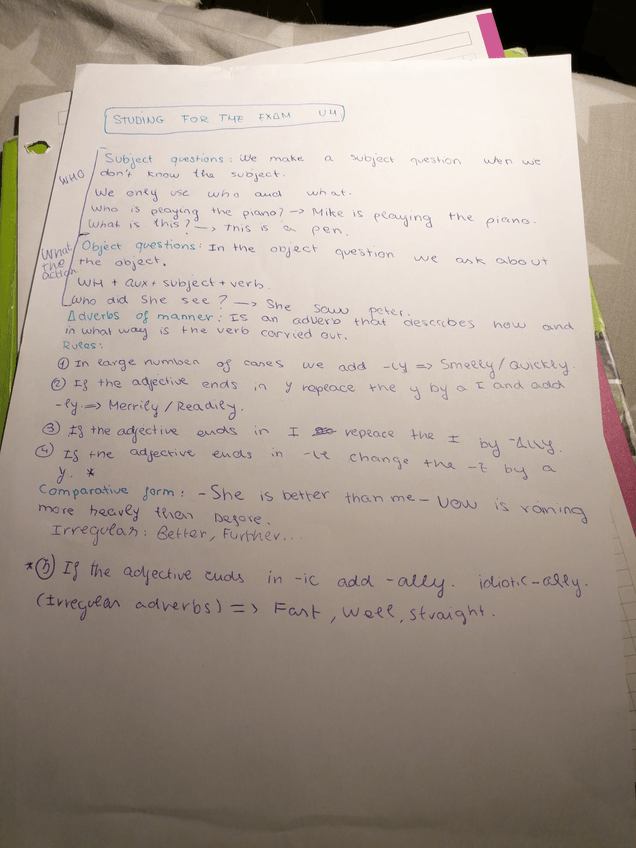 STUDING FOR THE EXAM U4
Subject questions: We make a subject question wen we
don't know the subject.
WHO
We only use who and what.
Who is peaying the piano? → Mike is peaying the piano.
What is this? → This is a pen.
What
the
action
Object questions: In the object question we ask about
the object.
WH + aux + subject + verb.
Who did she see? → She saw peter.
Adverbs of manner: Is an adverb that describes how and
in what way is the verb carried out.
Rules:
① In large number of cases we add -ly => Smelly/Quickly.
② If the adjective ends in y repeace the y by a I and add
-ly. => Merrily/Readily.
③ If the adjective ends in I repeace the I by -Ally.
④ If the adjective ends in -le change the -E by a
y. *
Comparative form: - She is better than me - Now is raining
more heavly then before.
Irregular: Better, Further...
*⑤ If the adjective ends in -ic add -ally. idiotic-ally.
(Irregular adverbs) => Fast, Well, straight.